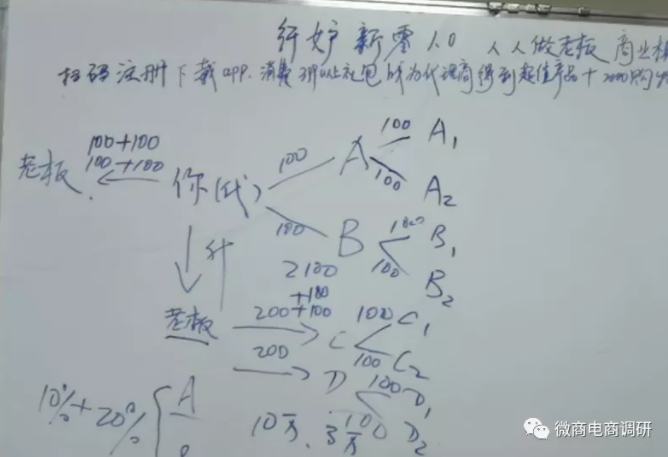 纤妒新零1.0 人人做老板 商业模
扫码注册下载app.消费399以上礼包成为代理商得到超值产品+2000购物
100+100
100+100
老板
你(代)
100
A
100
A1
100
A2
100
B
100
B1
100
B2
2100
+100
升
老板
200+100
C
100
C1
100
C2
200
D
100
D1
100
D2
10%+20%
A
10万、3万
微商电商调研